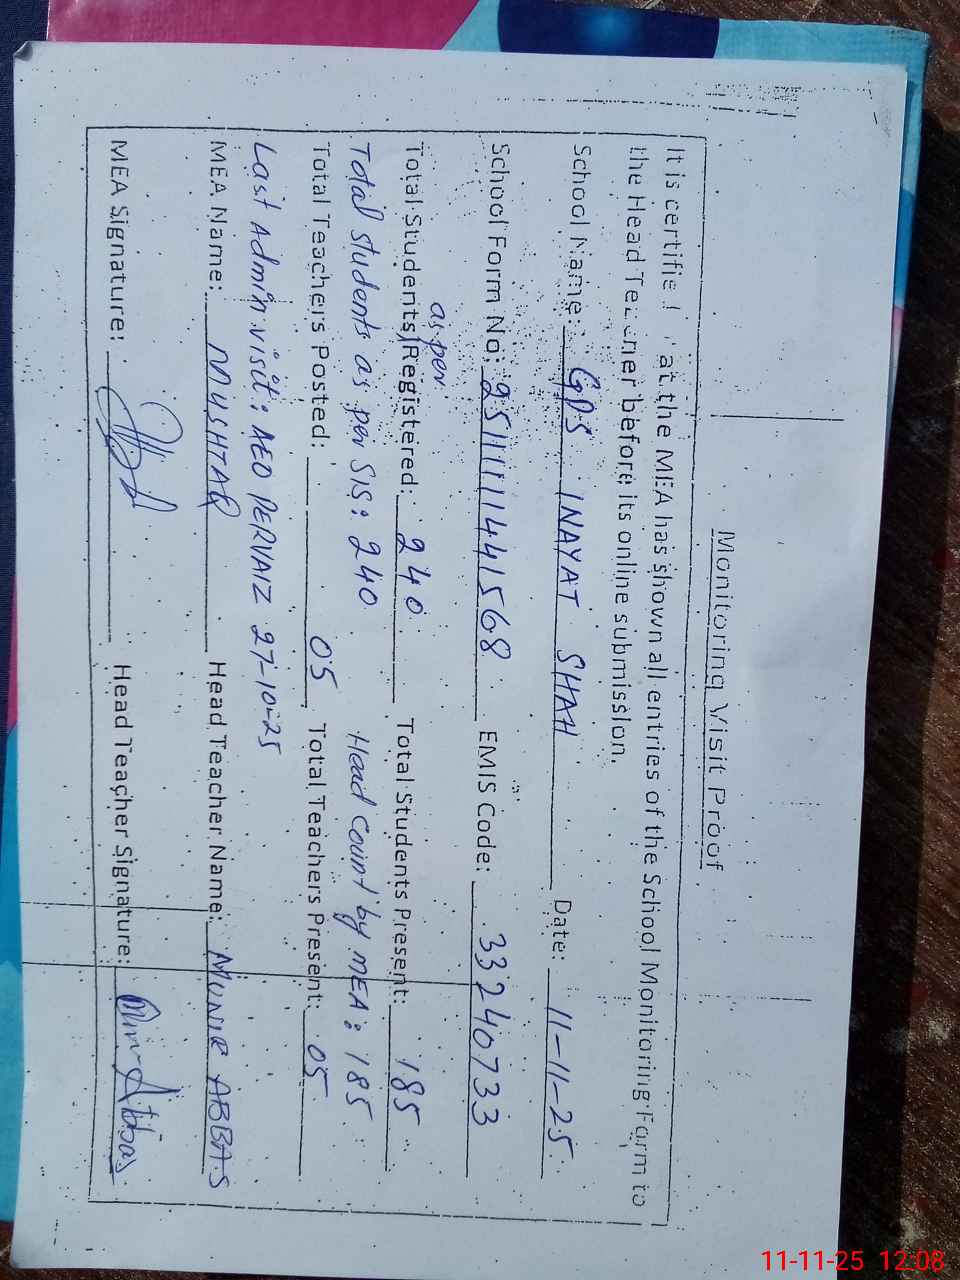 Monitoring Visit Proof
It is certified that the MEA has shown all entries of the School Monitoring Form to
the Head Teacher before its online submission.
School Name: GPS INAYAT SHAH Date: 11-11-25
School Form No: 251111141568 EMIS Code: 33240733
as per
Total Students Registered: 240 Total Students Present: 185
Total students as per SIS: 240 Head count by MEA: 185
Total Teachers Posted: 05 Total Teachers Present: 05
Last Admin visit: AEO PERVAIZ 27-10-25
MEA Name: MUSHTAQ Head Teacher Name: MUNIR ABBAS
MEA Signature: Head Teacher Signature: Abbas
11-11-25 12:08